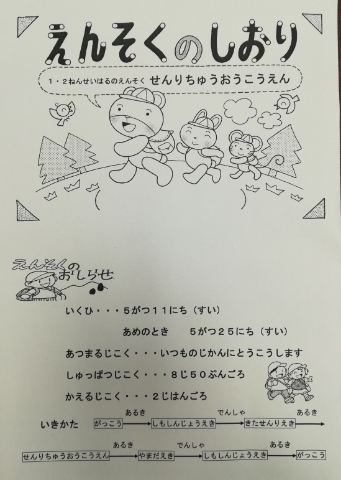 えんそくのしおり
1・2ねんせいはるのえんそく せんりちゅうおうこうえん
えんそくの
おしらせ
いくひ・・・5がつ11にち(すい)
あめのとき 5がつ25にち(すい)
あつまるじこく・・・いつものじかんにとうこうします
しゅっぱつじこく・・・8じ50ぷんごろ
かえるじこく・・・2じはんごろ
あるき でんしゃ あるき
いきかた がっこう しもしんじょうえき きたせんりえき
あるき でんしゃ あるき
せんりちゅうおうこうえん やまだえき しもしんじょうえき がっこう